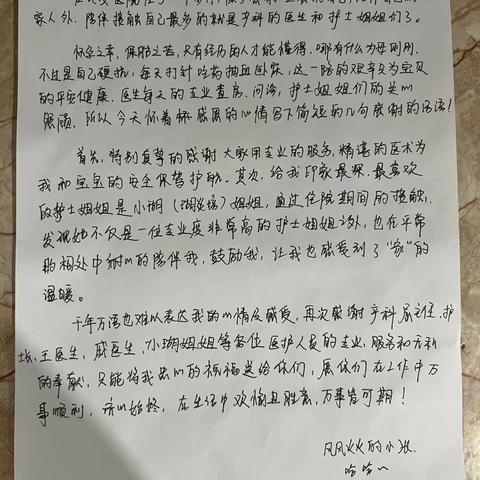 家人外，陪伴接触自己最多的就是亨科的医生和护士姐姐们了。
怀孕之幸，保胎之苦，只有经历的人才能懂得，哪有什么为母则刚，
不过是自己硬扛，每天打针吃药抽血卧床，这一路的艰辛只为宝贝
的平安健康，医生每天的专业查房、问诊，护士姐姐们的关心
照顾，所以今天怀着怀感恩的心情写下简短的几句感谢的话语！
首先，特别真挚的感谢大家用专业的服务，精湛的医术为
我和宝宝的安全保驾护航。其次，给我印象最深，最喜欢
的护士姐姐是小胡（湖）姐姐，通过住院期间的接触，
发现她不仅是一位专业度非常高的护士姐姐以外，也在平常
的相处中耐心的陪伴我，鼓励我，让我也感受到了“家”的
温暖。
千年万语也难以表达我的心情及感受，再次感谢亨科主任，护
长，王医生，戚医生，小瑚姐姐等各位医护人员的专业，服务和无私
的奉献，只能将我忠心的祝福送给你们，愿你们在工作中万
事顺利，济以始终，在生活中欢愉且胜意，万事皆可期！
风风火火的小张
哈哈～